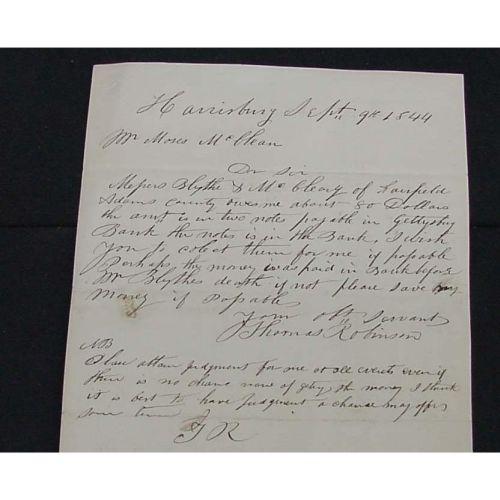 Harrisburg Sept 9th 1844
Mr Moses McClean
Dr Sir
Messrs Blythe & McCleary of Fairfield
Adams County owes me about 80 Dollars
the amt is in two notes payable in Gettysbg
Bank the notes is in the Bank, I wish
you to colect them for me if posable
Perhaps thy money was paid in Bank before
Mr Blythes death if not please save my
money if posable
your obt Servant
Thomas Robinson
NB
attain judgment for me at all events even if
there is no chance now of the money I think
it is best to have judgment a chance may offer
some time
T R